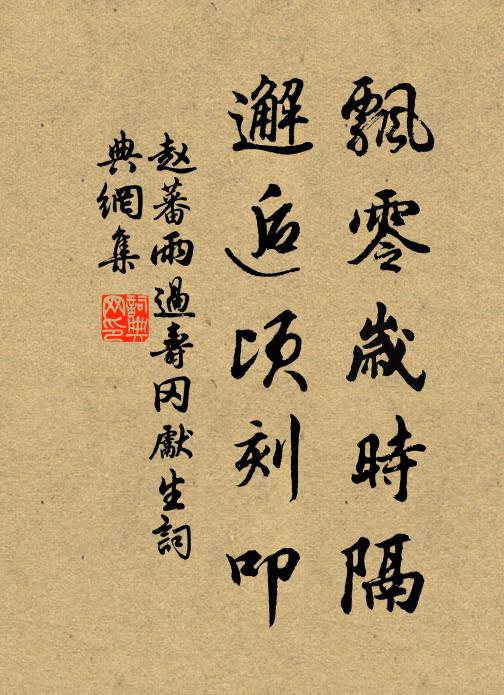 飄零歲時隔
邂逅頃刻叩
赵蕃雨過壽冈獻生詞
典網集
詞典
网印